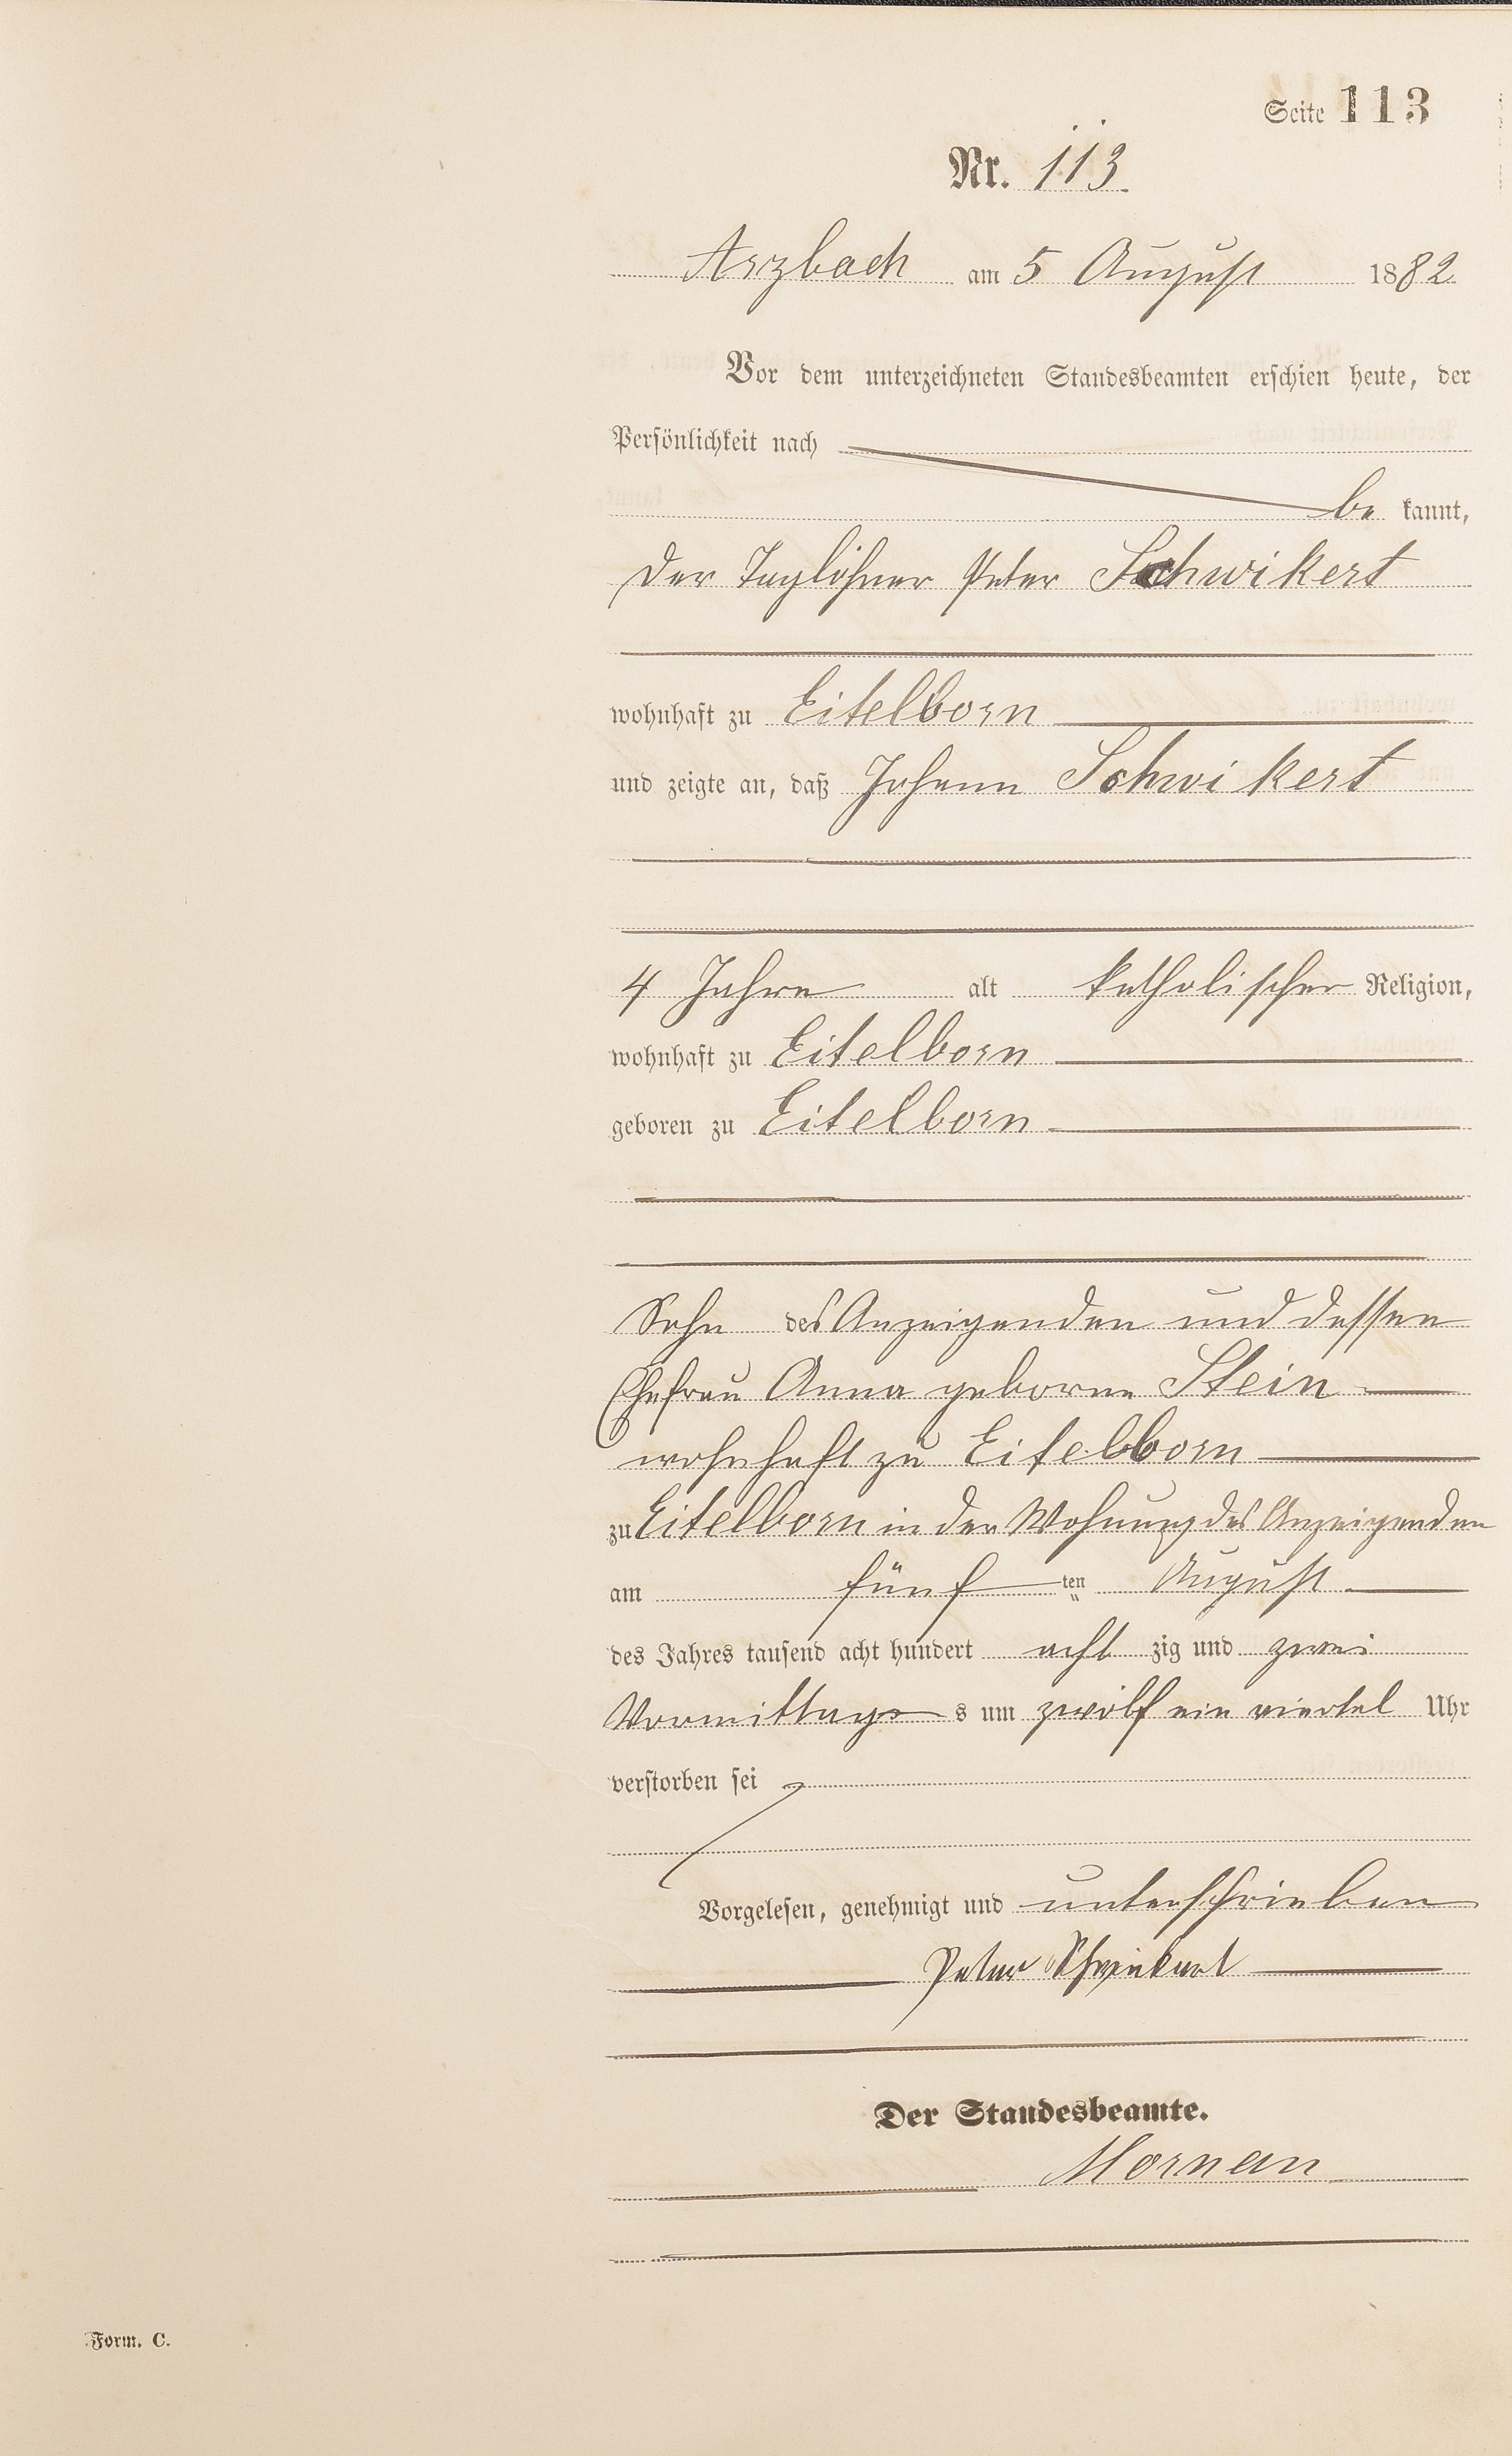 Seite 113
Nr. 113
Arzbach am 5 August 1882
Vor dem unterzeichneten Standesbeamten erschien heute, der
Persönlichkeit nach
be kannt,
der Taglöhner Peter Schwikert
wohnhaft zu Eitelborn
und zeigte an, daß Johann Schwikert
4 Jahre alt katholischer Religion,
wohnhaft zu Eitelborn
geboren zu Eitelborn
Sohn des Anzeigenden und dessen
Ehefrau Anna geborne Stein
wohnhaft zu Eitelborn
zu Eitelborn in der Wohnung des Anzeigenden
am fünf ten August
des Jahres tausend acht hundert acht zig und zwei
Vormittag s um zwölf ein viertel Uhr
verstorben sei
Vorgelesen, genehmigt und unterschrieben
Peter Schwikert
Der Standesbeamte.
Form. C.